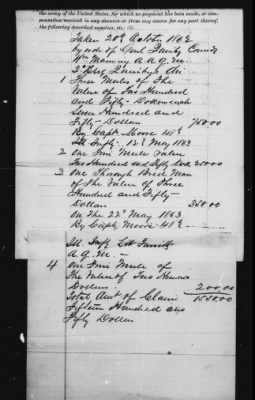 the army of the United States, for which no payment has been made, or com-
pensation received in any manner or from any source for any part thereof,
the following described supplies, etc.:
Taken 20th October 1862
by ord of Genl Comd
Wm A. A. Q. M.
1 Five Mules of the
Value of Two Hundred
and Fifty Dollars each
Seven Hundred and
Fifty Dollars 750.00
By Capt Moore 48th
Ill Infty 12th May 1863
2 One Mule Value
Two Hundred and Fifty 250.00
3 One Through Bred Mare
of The Value of Three
Hundred and Fifty
Dollars 350.00
on The 22d May 1863
By Capt Moore 48th
Ill Infty
A. Q. M.
4 One Mule of
The Value of Two Hundred
Dollars 200.00
Total Amt of Claim 1550.00
Fifteen Hundred and
Fifty Dollars